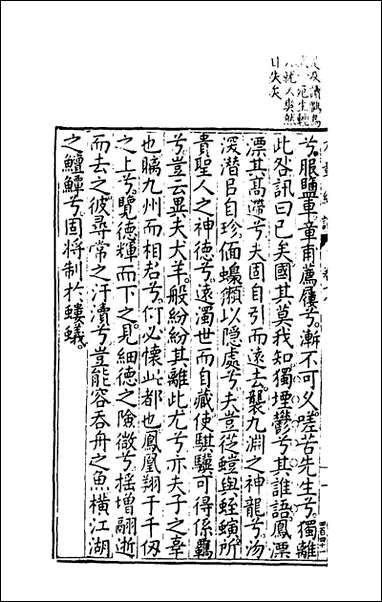 兮服鹽車章甫薦屨兮漸不可久嗟苦先生兮獨離
此咎訊曰已矣國其莫我知獨堙鬱兮其誰語鳳票
漂其髙遰兮夫固自引而遠去襲九淵之神龍兮沕
深潜㠯自珍偭蟂獺以隱處兮夫豈從螘與蛭螾所
貴聖人之神德兮遠濁世而自藏使騏驥可得係羈
兮豈云異夫犬羊般紛紛其離此尤兮亦夫子之辜
也瞝九州而相君兮何必懷此都也鳳凰翔于千仭
之上兮覽德輝而下之見細德之險微兮揺增翮逝
而去之彼尋常之汙瀆兮豈能容吞舟之魚橫江湖
之鱣鱏兮固將制於螻蟻